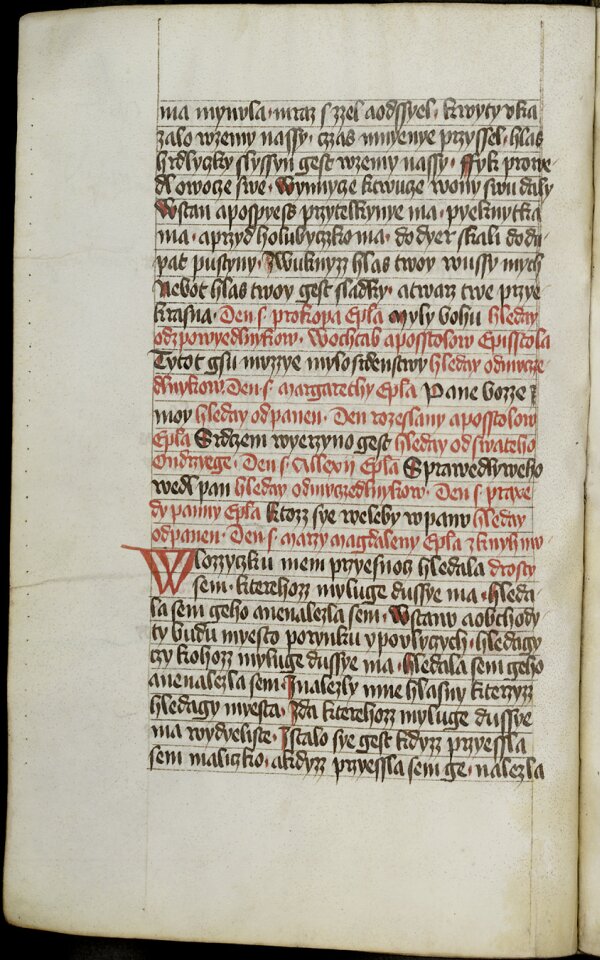 ma mynula · mraz s zzel a odssyel · kwyty vka
zalo wzemy nassy · czas mnyenye przyssel · hlas
hrdlyczky slyssyn gest wzemy nassy · ffyk prowe
dl owocze swe · Wynnycze ktwucze wony swu daly
Wstan a pospyess przytelkynye ma · pyeknytka
ma · a przyd holubyczko ma · do dyer skali do du
pat pustyny · Wuknyzz hlas twoy wussy mych
Nebot hlas twoy gest sladky · a twarz twe przye
krasna · Den s · prokopa Epla Myly bohu hleday
od zpowyedlnykow · Wochtab apossstolow Episstola
Tytot gsu muzzye mylosrdenstwy hleday od mucze
dlnykow Den s · margarethy Epla Pane boze
moy hleday od panen · Den rozeslany aposstolow
Epla Srdczem wyerzyno gest hleday od swateho
Ondrzege · Den s · Allexij Epla Sprawedlyweho
wedl pan hleday od muczedlnykow · Den s · praxe
dy panny Epla ktozz sye weleby w panu hleday
od panen · Den s · marzy magdaleny Epla z knyh mu
W lozzyczku mem przyesnocz hledala drosty
sem · kterehozz myluge dussye ma · hleda
la sem geho a nenalezla sem · Wstanu a obchody
ty budu myesto po rynku y po vlyczych · hledagy
czy kohozz myluge dussye ma · hledala sem geho
a nenalezla sem · I nalezly mne hlasny kterzyzz
hledagy myesta · Zda kterehozz myluge dussye
ma wydyeliste · I stalo sye gest kdyzz przyessla
sem maliczko · a kdyzz przyessla sem ge · nalezla